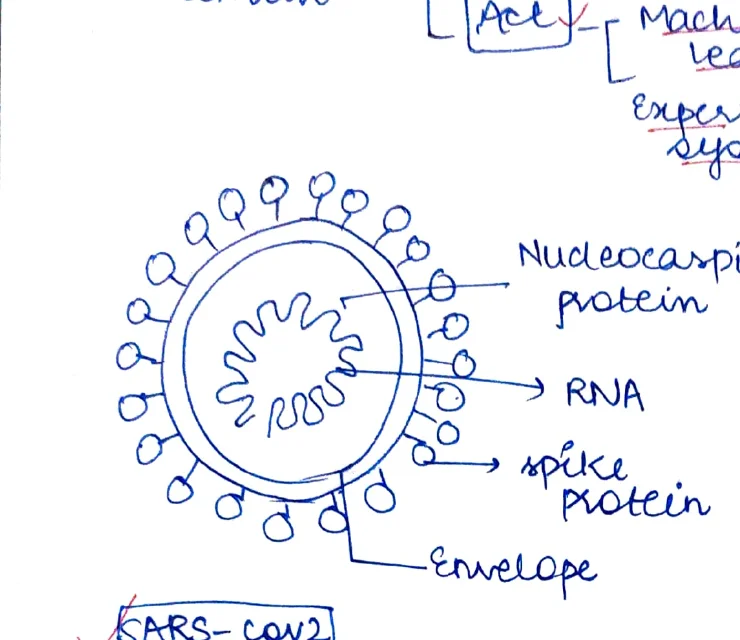 Act
Mach
lea
Exper
sys
Nucleocaspi
protein
RNA
spike
protein
Envelope
SARS-CoV2